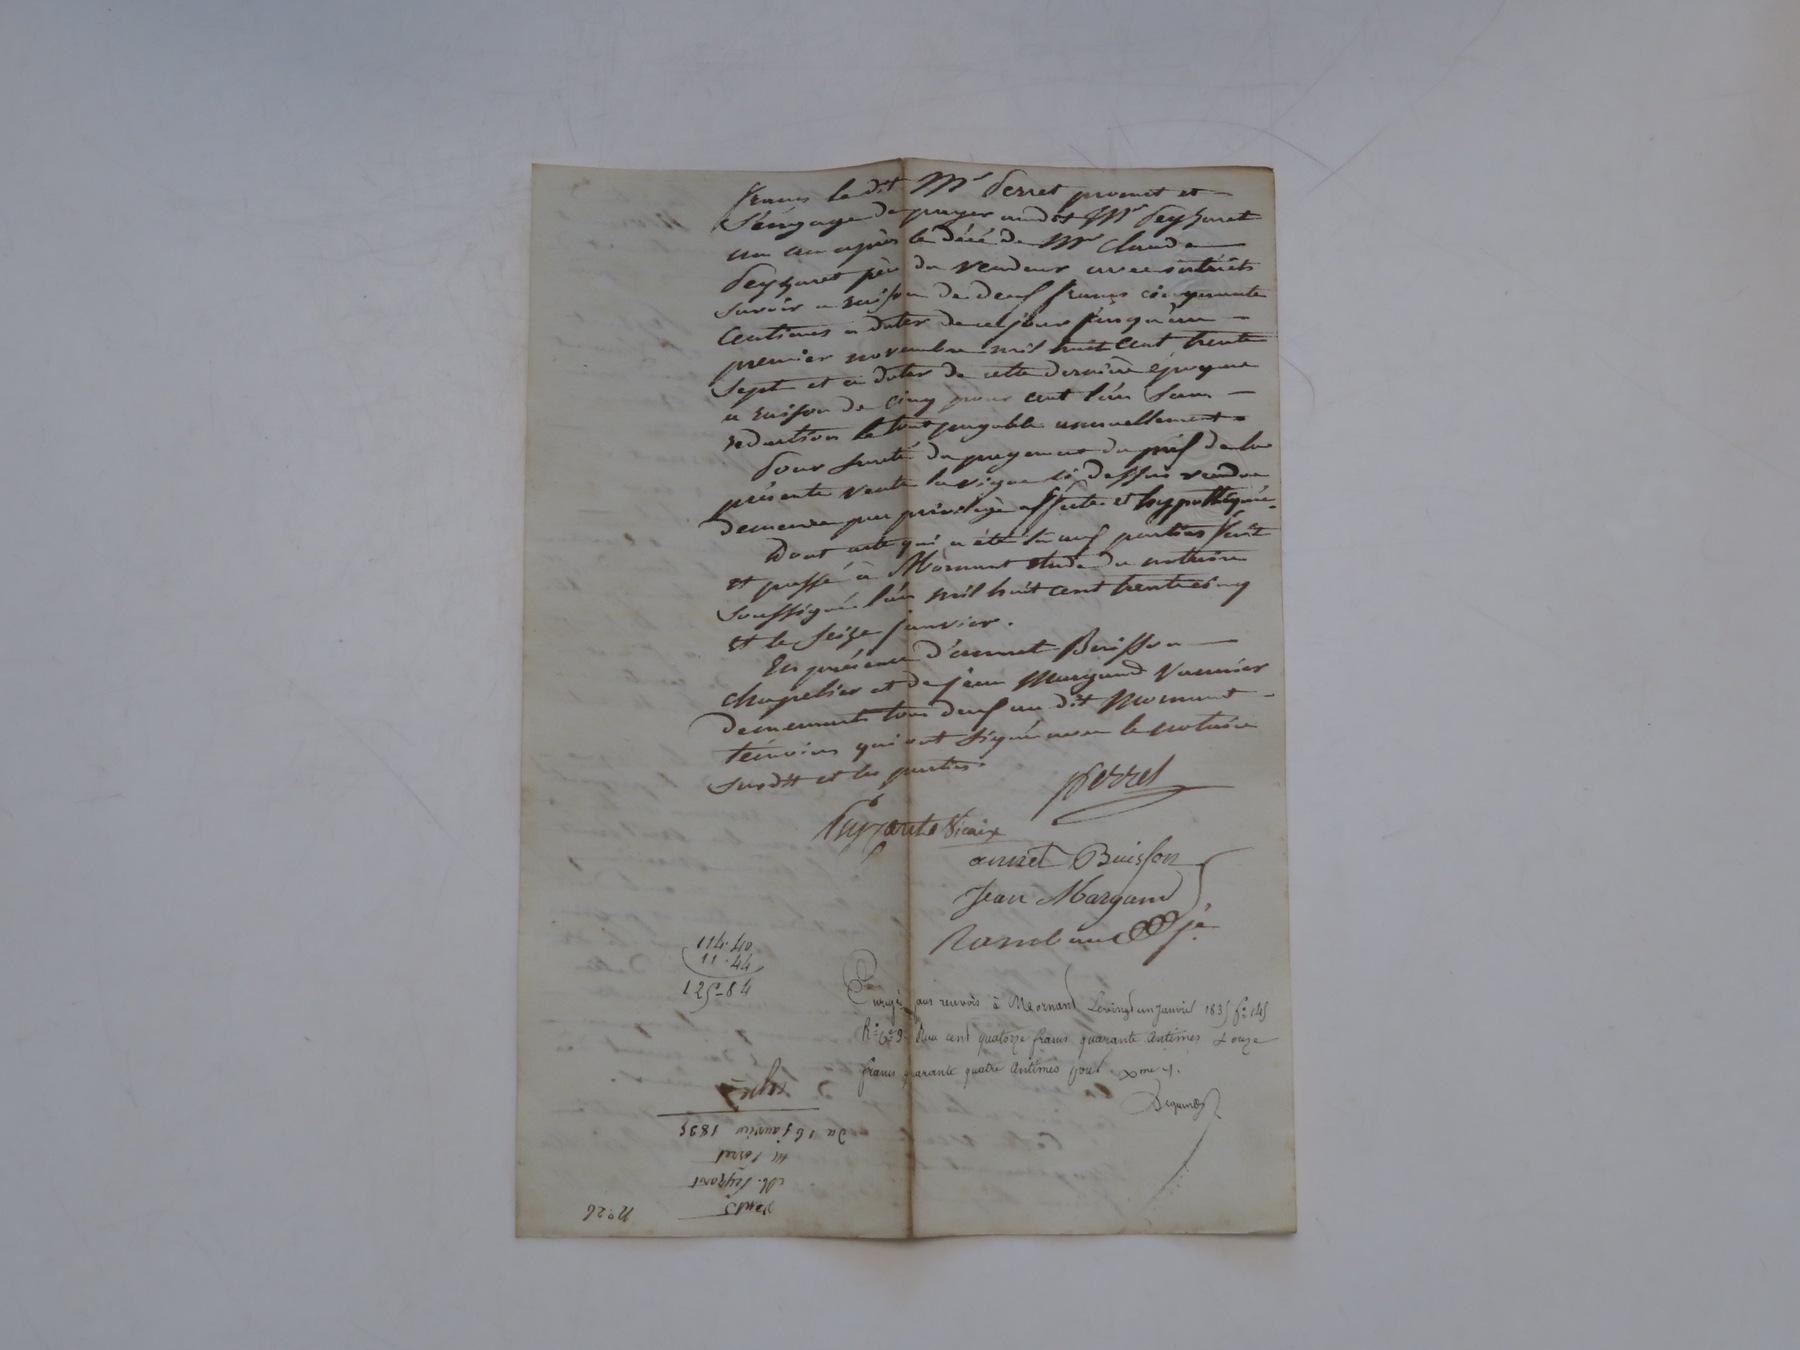 francs le dit Mr Perret promet et
s'engage de payer audit Mr Peyzaret
un an après le décé de Mr Claude
Peyzaret père du vendeur avec intérêts
savoir a raison de deux francs cinquante
centimes a dater de ce jour jusqu'au
premier novembre mil huit cent trente
sept et a dater de cette dernière époque
a raison de cinq pour cent l'an sans
réduction le tout payable annuellement
Pour sureté du payement du prix de la
présente vente la vigne ci dessus vendue
demeure par privilège affectée et hypothéquée.
Dont acte qui a été lu aux parties fait
et passé à Mornant étude du notaire
soussigné l'an mil huit cent trente cinq
et le seize janvier.
En présence d'annet Buisson
chapelier et de jean Margand vannier
demeurants tous deux au dit Mornant
témoins qui ont signé avec le notaire
susdit et les parties.
Perret
annet Buisson
Jean Margand
114.40
11.44
125-84
Enregé sans renvois à Mornant Le vingt un Janvier 1835 fo 145
Ro Co 9 Reçu cent quatorze francs quarante centimes & onze
francs quarante quatre centimes pour Xme
Du 16 janvier 1835
M Perret
M. Peyzaret
vente
No 26